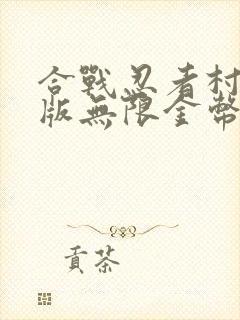 合戰忍者村
版無限金幣
貢茶